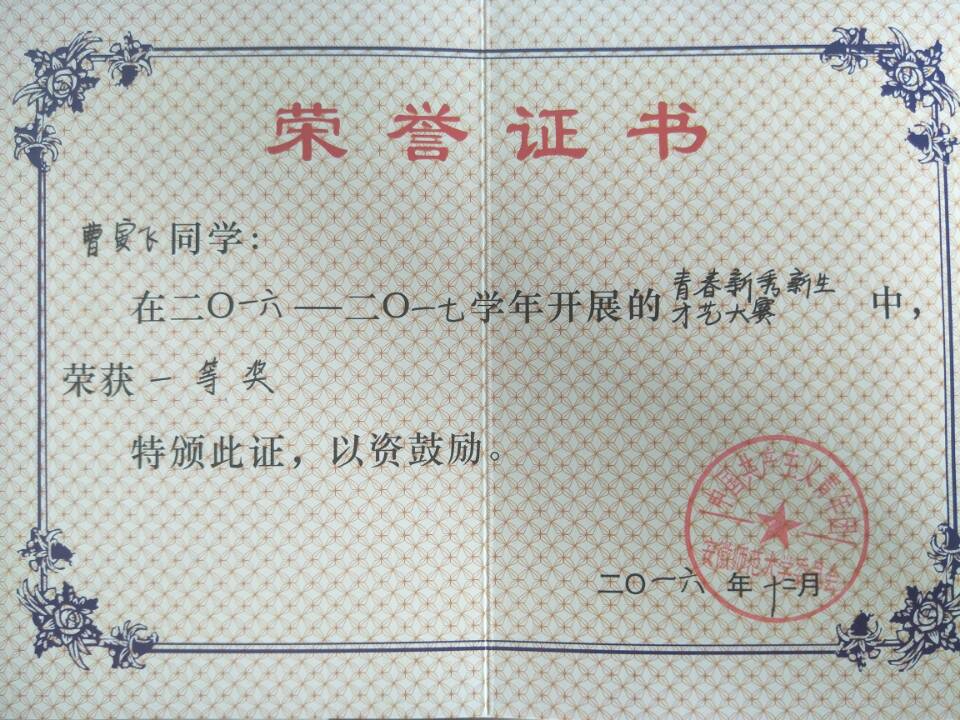 荣誉证书
曹寅飞同学:
在二〇一六—二〇一七学年开展的青春新秀新生
才艺大赛中，
荣获一等奖
特颁此证，以资鼓励。
中国共产主义青年团
安徽师范大学委员会
二〇一六年十二月